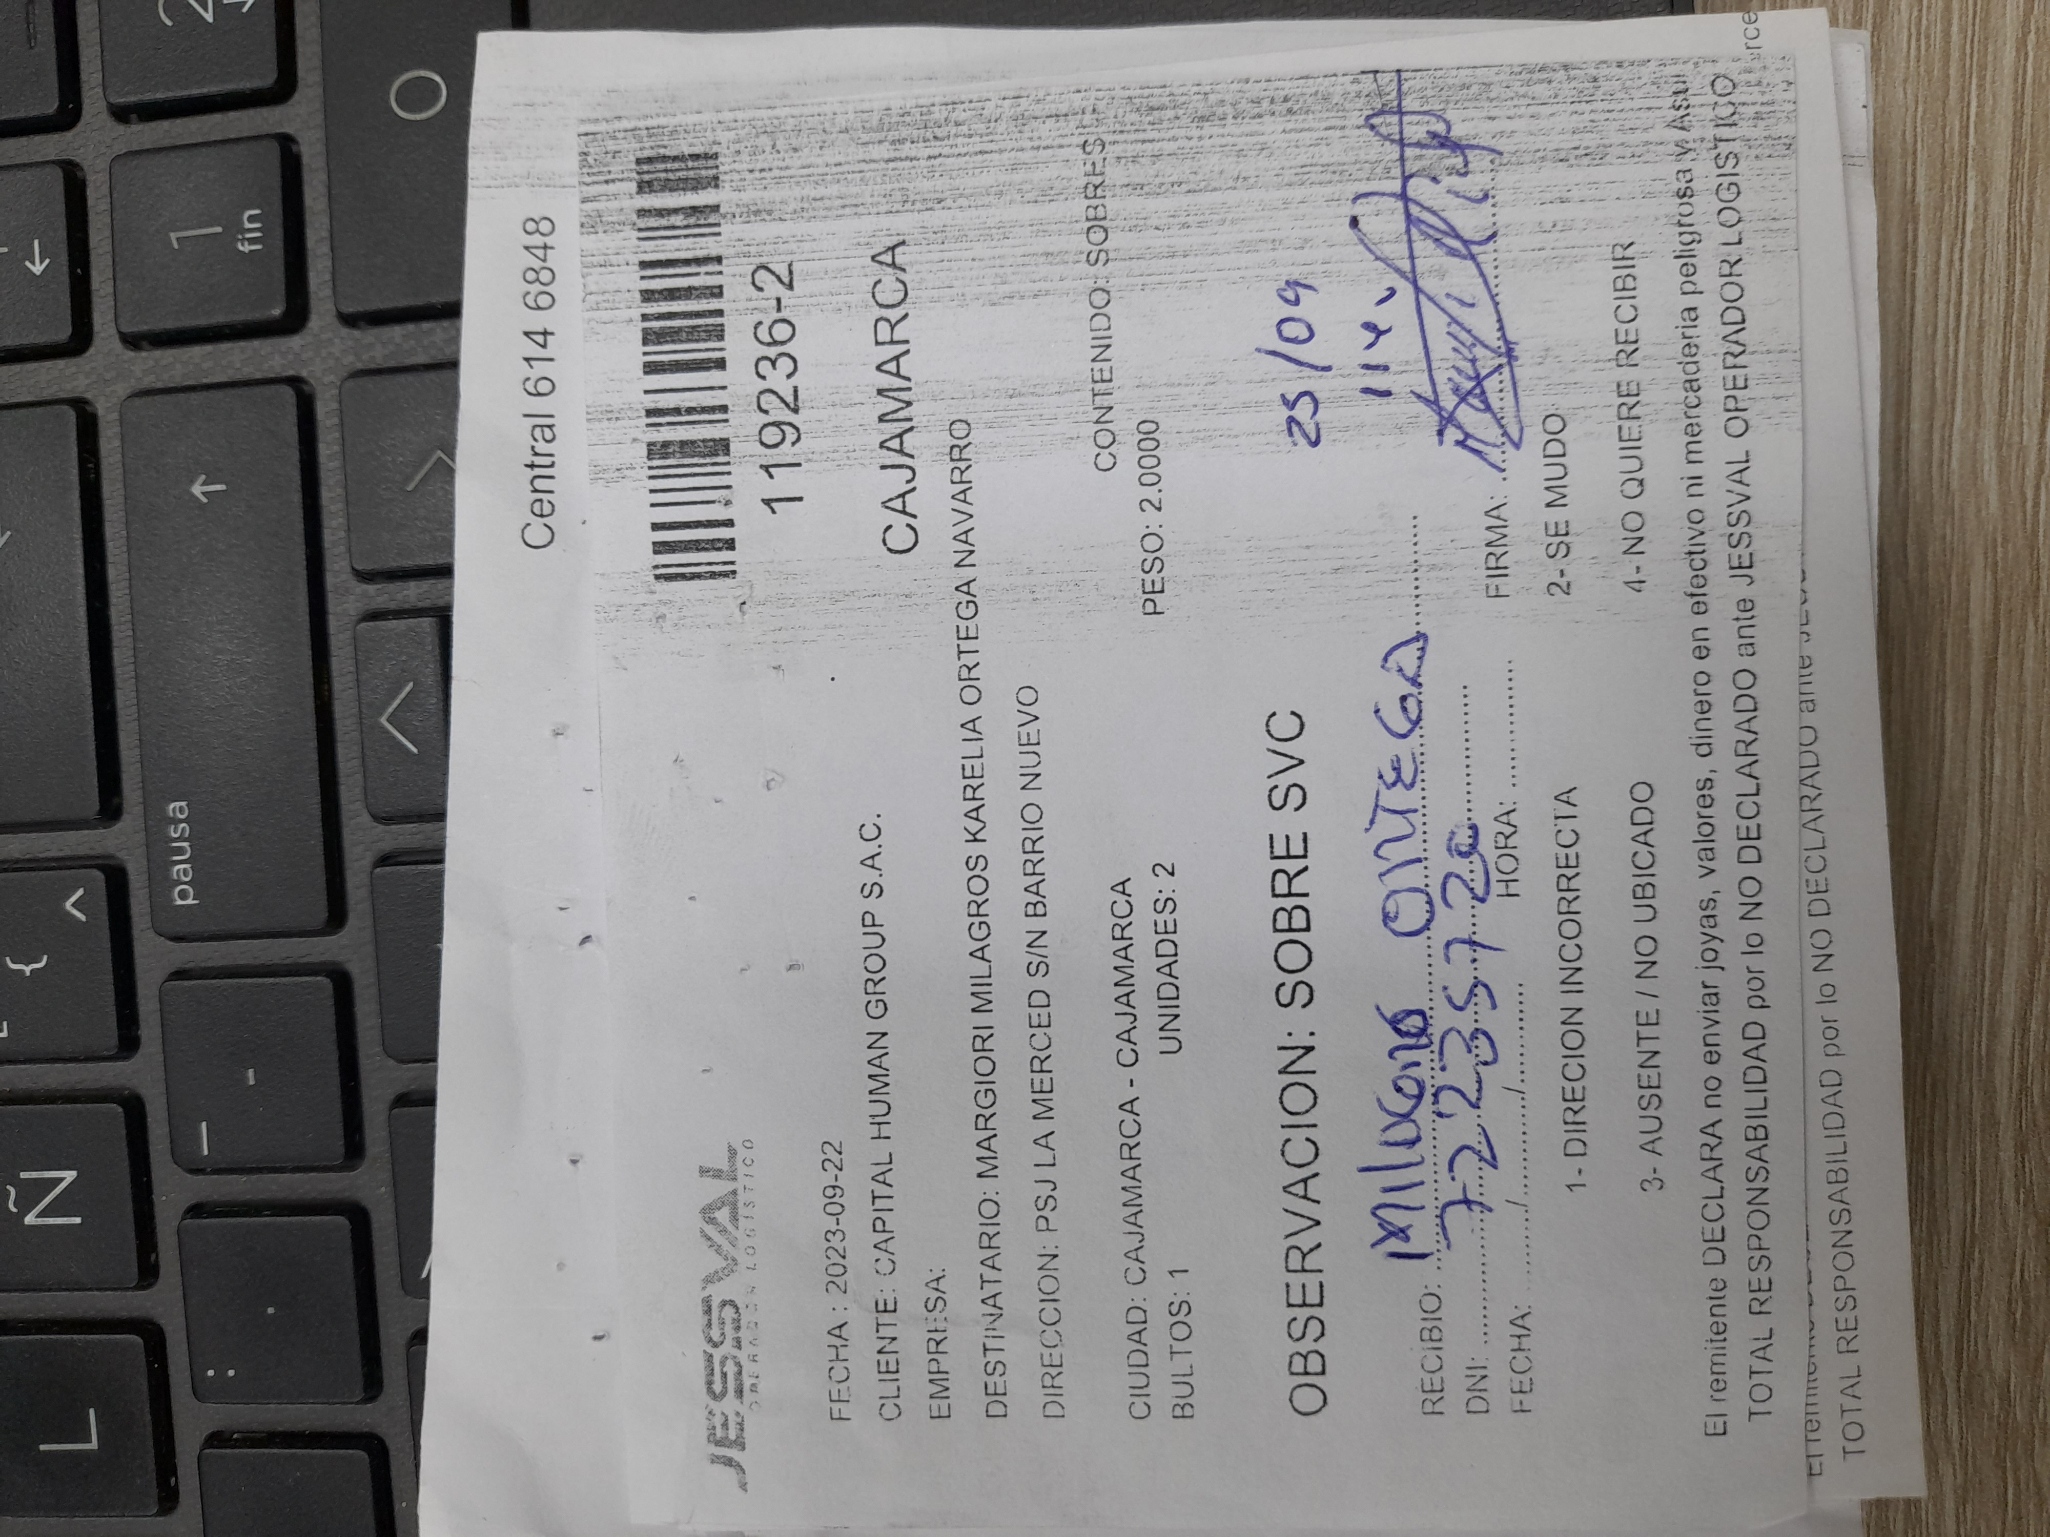 L Ñ { ^ ←
pausa ↑ 1 fin 2
: . _ -
O
Central 614 6848
JESSVAL
OPERADOR LOGÍSTICO
119236-2
FECHA : 2023-09-22
CLIENTE: CAPITAL HUMAN GROUP S.A.C.
CAJAMARCA
EMPRESA:
DESTINATARIO: MARGIORI MILAGROS KARELIA ORTEGA NAVARRO
DIRECCION: PSJ LA MERCED S/N BARRIO NUEVO
CONTENIDO: SOBRES
CIUDAD: CAJAMARCA - CAJAMARCA
BULTOS: 1 UNIDADES: 2 PESO: 2.0000
OBSERVACION: SOBRE SVC
25/09
RECIBIO: Milagros ORTEGA
DNI: 72235720
FECHA: ........./............/............ HORA: .............. FIRMA:
1- DIRECION INCORRECTA 2- SE MUDO
3- AUSENTE / NO UBICADO 4- NO QUIERE RECIBIR
El remitente DECLARA no enviar joyas, valores, dinero en efectivo ni mercaderia peligrosa y Asu
TOTAL RESPONSABILIDAD por lo NO DECLARADO ante JESSVAL OPERADOR LOGISTICO
El remitente
TOTAL RESPONSABILIDAD por lo NO DECLARADO ante